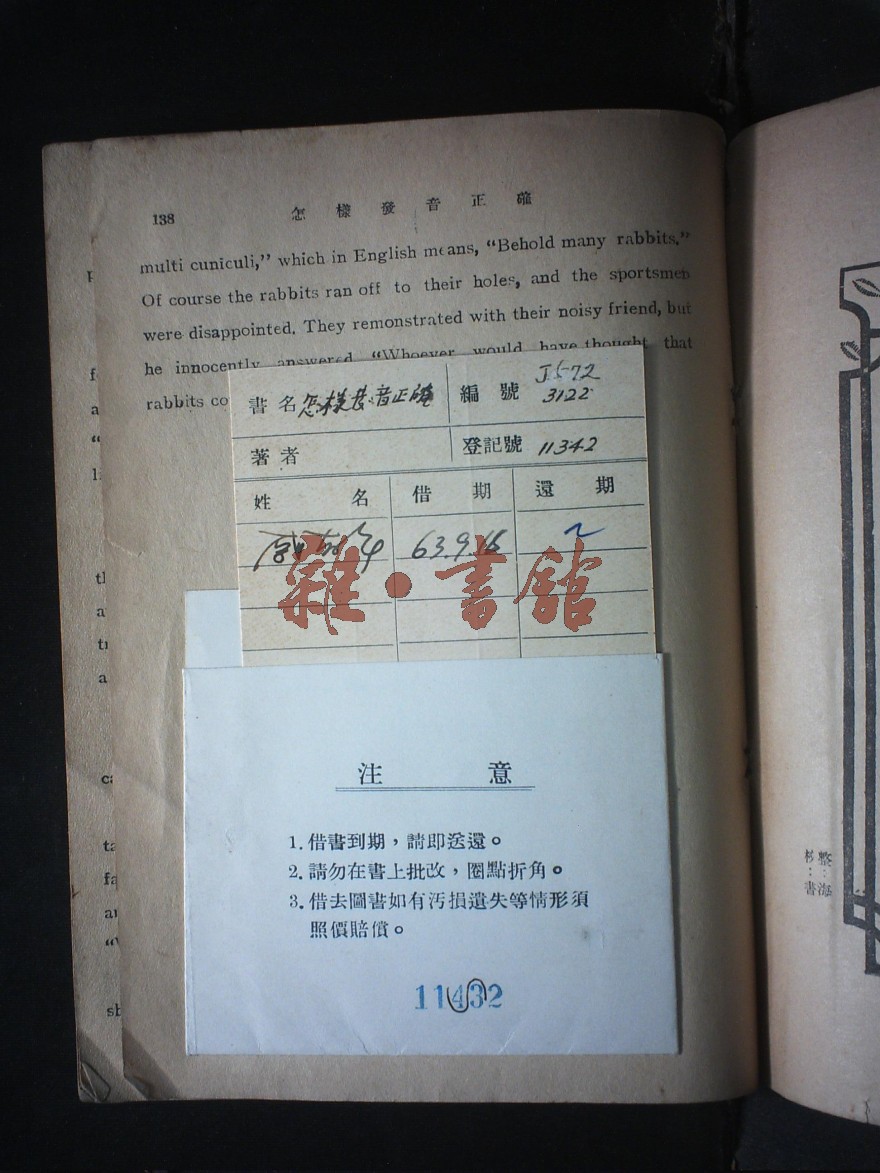 138 怎樣發音正確
multi cuniculi,” which in English means, “Behold many rabbits.”
Of course the rabbits ran off to their holes, and the sportsmen
were disappointed. They remonstrated with their noisy friend, but
he innocently answered “Whoever would have thought that
rabbits co
書名 怎樣發音正確 編號 J572 3122
著者 登記號 11342
姓名 借期 還期
63.9.18
雜·書館
注意
1. 借書到期，請即送還。
2. 請勿在書上批改，圈點折角。
3. 借去圖書如有污損遺失等情形須
照價賠償。
11432
整：海
校：書